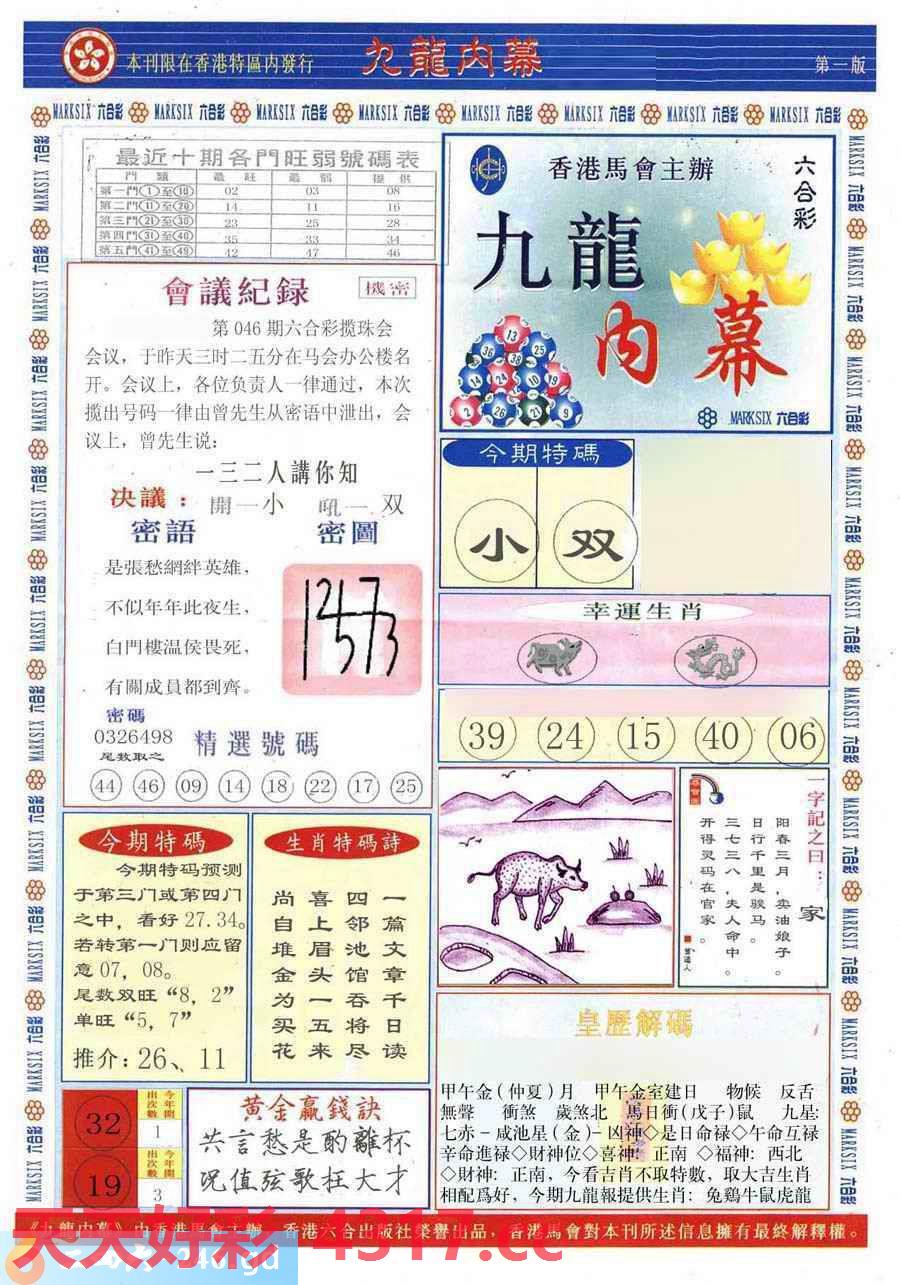 本刊限在香港特區内發行
九龍内幕
第一版
MARKSIX 六合彩
最近十期各門旺弱號碼表
門類 最旺 最弱 提供
第一門①至⑩ 02 03 08
第二門⑪至⑳ 14 11 16
第三門㉑至㉚ 23 25 28
第四門㉛至㊵ 35 33 34
第五門㊶至㊾ 42 47 46
香港馬會主辦
六合彩
九龍
内幕
MARKSIX 六合彩
會議紀録
機密
第 046 期六合彩揽珠会
会议，于昨天三时二五分在马会办公楼名
开。会议上，各位负责人一律通过，本次
揽出号码一律由曾先生从密语中泄出，会
议上，曾先生说：
一三二人講你知
决議： 開一小 吼一双
密語 密圖
是張愁網絆英雄，
不似年年此夜生，
白門樓温侯畏死，
有關成員都到齊。
密碼
0326498
尾数取之
精選號碼
44 46 09 14 18 22 17 25
今期特碼
小 双
幸運生肖
39 24 15 40 06
一字記之曰：家
阳春三月，卖油娘子。
日行千里是骏马。
三七三八，夫人命中。
开得灵码在官家。
曾道人
今期特碼
今期特码预测
于第三门或第四门
之中，看好 27.34。
若转第一门则应留
意 07，08。
尾数双旺“8，2”
单旺“5，7”
推介：26、11
生肖特碼詩
一篇文章千日读
四邻池馆吞将尽
喜上眉头一五来
尚自堆金为买花
32 今年開出次數 1
19 今年開出次數 3
黄金贏錢訣
共言愁是酌離杯
况值弦歌枉大才
皇歷解碼
甲午金(仲夏)月 甲午金室建日 物候 反舌
無聲 衝煞 歲煞北 馬日衝(戊子)鼠 九星:
七赤－咸池星(金)－凶神◇是日命禄◇午命互禄
辛命進禄◇財神位◇喜神：正南 ◇福神：西北
◇財神：正南，今看吉肖不取特數，取大吉生肖
相配爲好，今期九龍報提供生肖：兔鷄牛鼠虎龍
《九龍内幕》由香港馬會主辦，香港六合出版社榮譽出品，香港馬會對本刊所述信息擁有最終解釋權。
天天好彩 4317.cc
246.gd